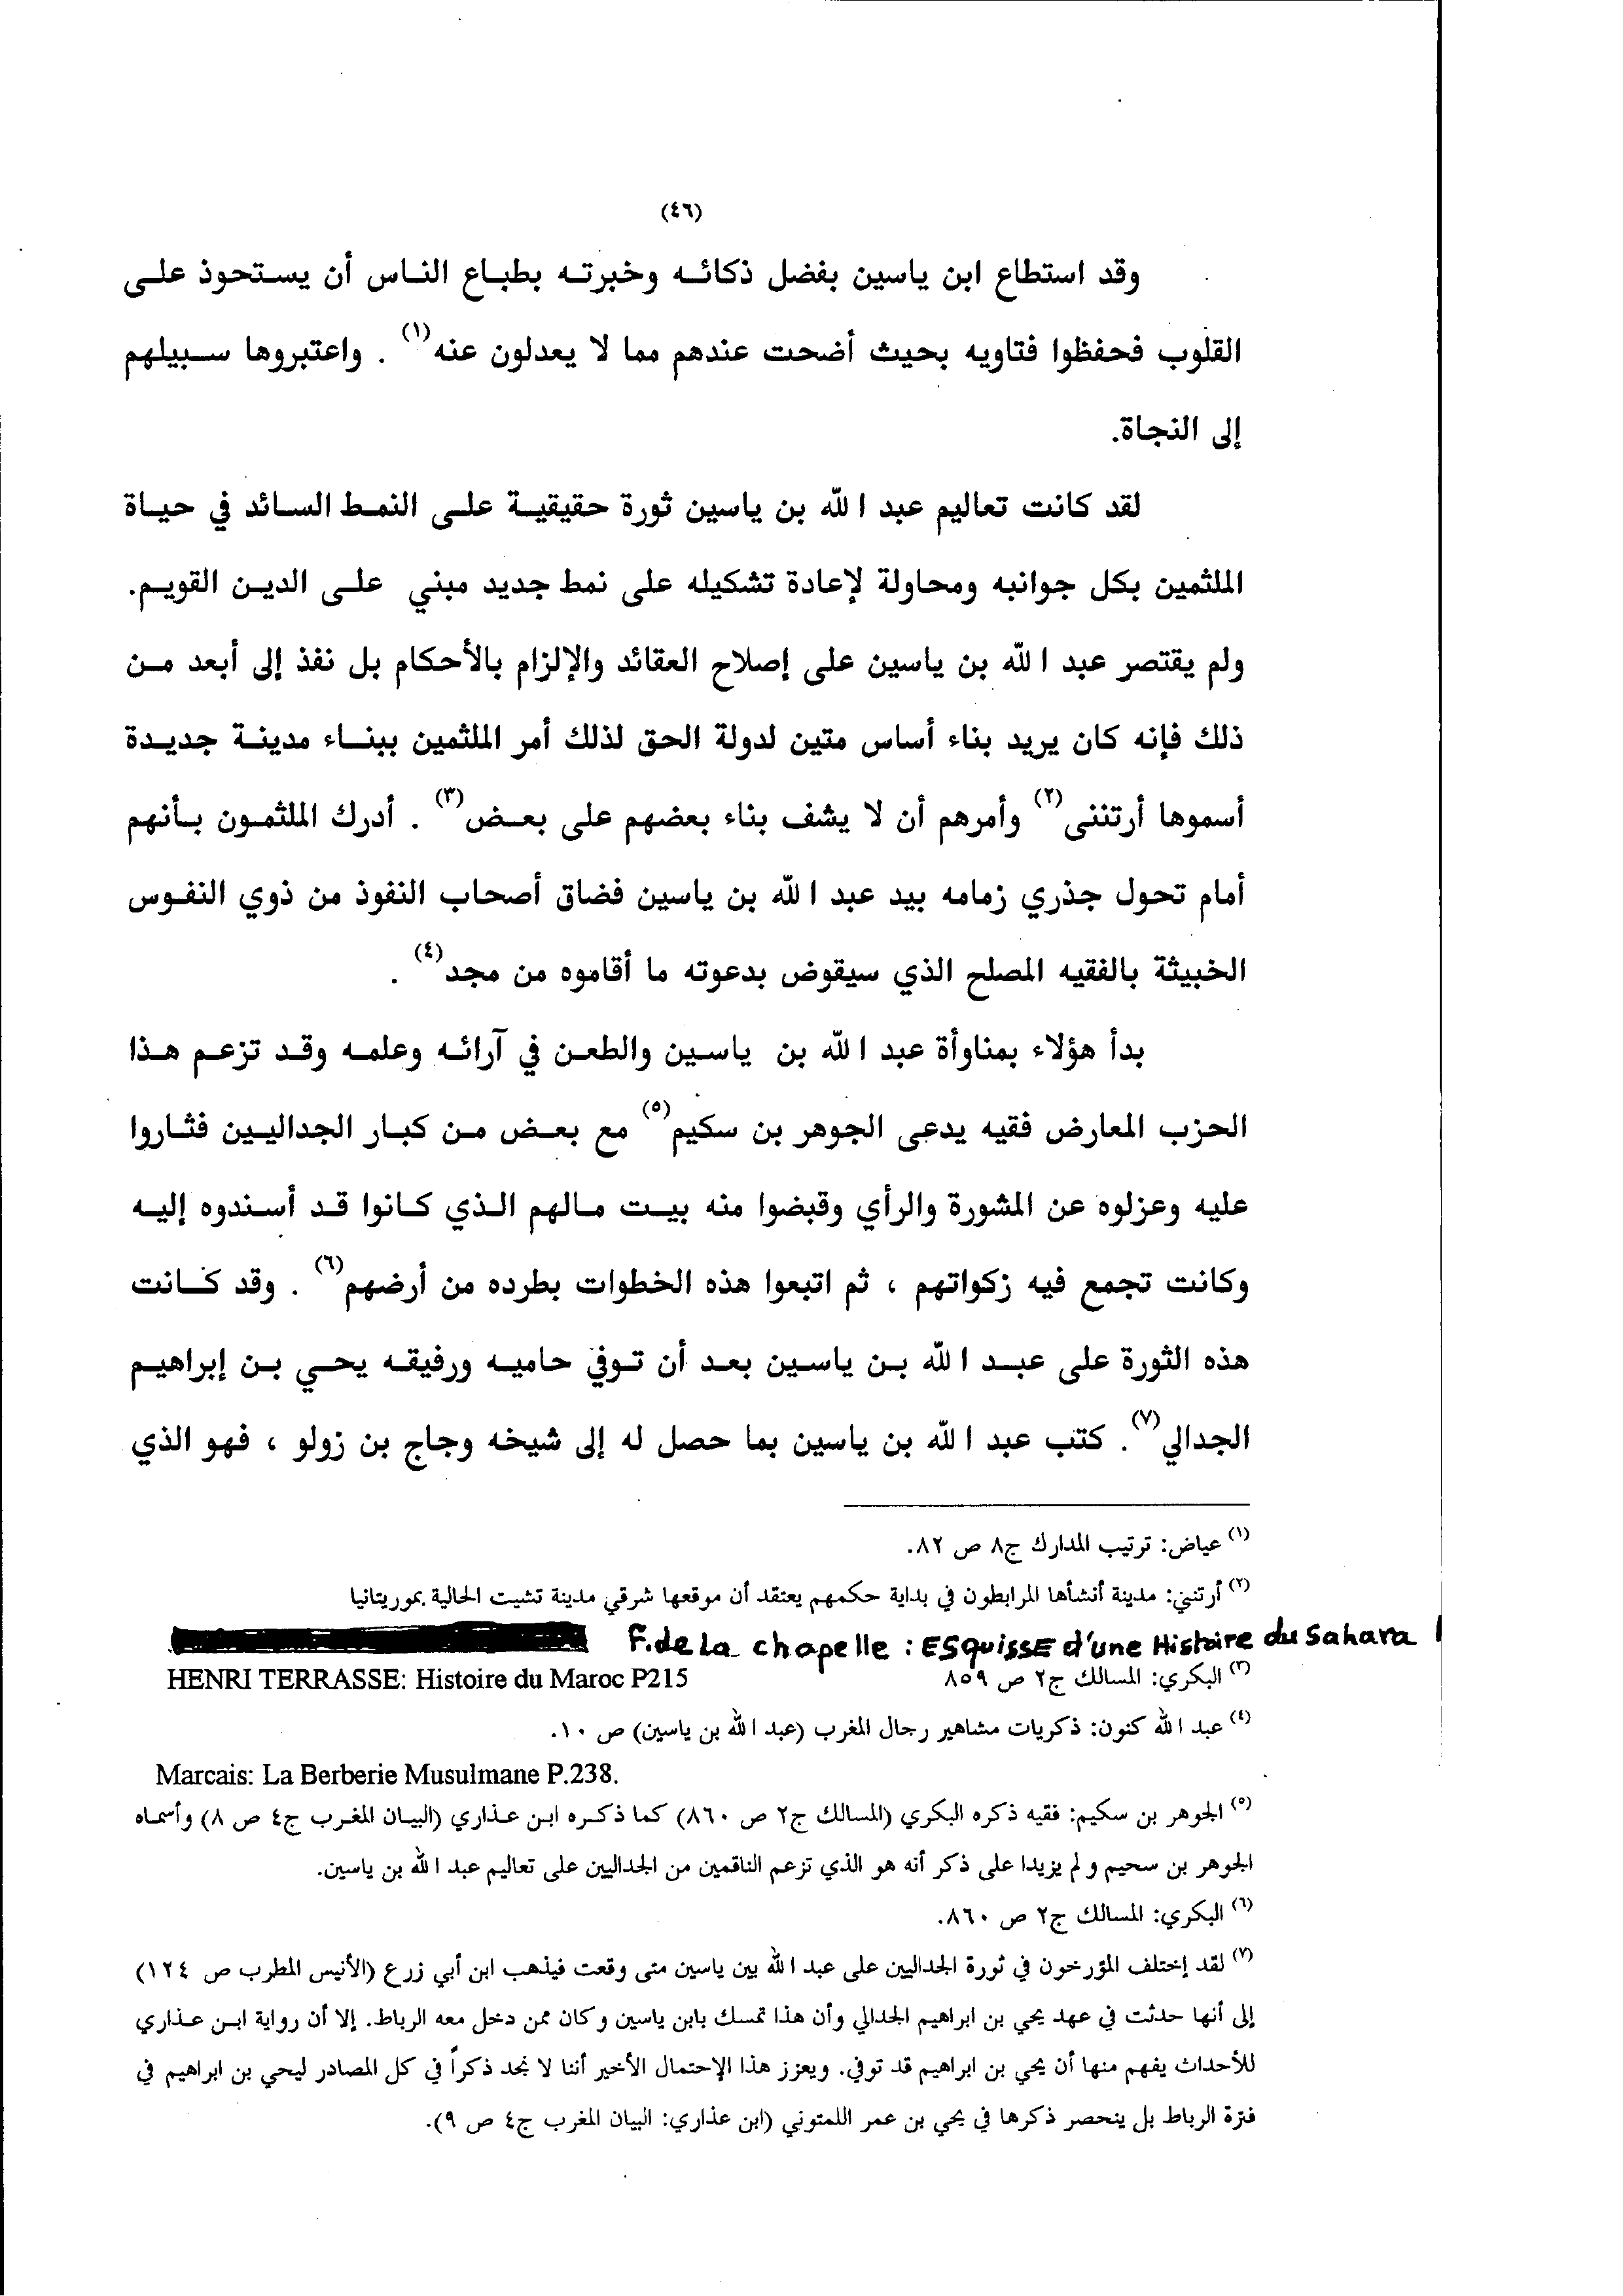 (٤٦)
وقد استطاع ابن ياسين بفضل ذكائه وخبرته بطباع الناس أن يستحوذ على
القلوب فحفظوا فتاويه بحيث أضحت عندهم مما لا يعدلون عنه(١) . واعتبروها سبيلهم
إلى النجاة.
لقد كانت تعاليم عبد الله بن ياسين ثورة حقيقية على النمط السائد في حياة
الملثمين بكل جوانبه ومحاولة لإعادة تشكيله على نمط جديد مبني على الدين القويم.
ولم يقتصر عبد الله بن ياسين على إصلاح العقائد والإلزام بالأحكام بل نفذ إلى أبعد من
ذلك فإنه كان يريد بناء أساس متين لدولة الحق لذلك أمر الملثمين ببناء مدينة جديدة
أسموها أرتننى(٢) وأمرهم أن لا يشف بناء بعضهم على بعض(٣) . أدرك الملثمون بأنهم
أمام تحول جذري زمامه بيد عبد الله بن ياسين فضاق أصحاب النفوذ من ذوي النفوس
الخبيثة بالفقيه المصلح الذي سيقوض بدعوته ما أقاموه من مجد(٤) .
بدأ هؤلاء بمناوأة عبد الله بن ياسين والطعن في آرائه وعلمه وقد تزعم هذا
الحزب المعارض فقيه يدعى الجوهر بن سكيم(٥) مع بعض من كبار الجداليين فثاروا
عليه وعزلوه عن المشورة والرأي وقبضوا منه بيت مالهم الذي كانوا قد أسندوه إليه
وكانت تجمع فيه زكواتهم ، ثم اتبعوا هذه الخطوات بطرده من أرضهم(٦) . وقد كانت
هذه الثورة على عبد الله بن ياسين بعد أن توفي حاميه ورفيقه يحي بن إبراهيم
الجدالي(٧). كتب عبد الله بن ياسين بما حصل له إلى شيخه وجاج بن زولو ، فهو الذي
(١) عياض: ترتيب المدارك ج٨ ص ٨٢.
(٢) أرتنني: مدينة أنشأها المرابطون في بداية حكمهم يعتقد أن موقعها شرقي مدينة تشيت الحالية بموريتانيا
F. de La chapelle : ESquisse d'une Histoire du Sahara
(٣) البكري: المسالك ج٢ ص ٨٥٩ HENRI TERRASSE: Histoire du Maroc P215
(٤) عبد الله كنون: ذكريات مشاهير رجال المغرب (عبد الله بن ياسين) ص ١٠.
Marcais: La Berberie Musulmane P.238.
(٥) الجوهر بن سكيم: فقيه ذكره البكري (المسالك ج٢ ص ٨٦٠) كما ذكره ابن عذاري (البيان المغرب ج٤ ص ٨) وأسماه
الجوهر بن سحيم ولم يزيدا على ذكر أنه هو الذي تزعم الناقمين من الجداليين على تعاليم عبد الله بن ياسين.
(٦) البكري: المسالك ج٢ ص ٨٦٠.
(٧) لقد إختلف المؤرخون في ثورة الجداليين على عبد الله بين ياسين متى وقعت فيذهب ابن أبي زرع (الأنيس المطرب ص ١٢٤)
إلى أنها حدثت في عهد يحي بن ابراهيم الجدالي وأن هذا تمسك بابن ياسين وكان ممن دخل معه الرباط. إلا أن رواية ابن عذاري
للأحداث يفهم منها أن يحي بن ابراهيم قد توفي. ويعزز هذا الإحتمال الأخير أننا لا نجد ذكراً في كل المصادر ليحي بن ابراهيم في
فترة الرباط بل ينحصر ذكرها في يحي بن عمر اللمتوني (ابن عذاري: البيان المغرب ج٤ ص ٩).